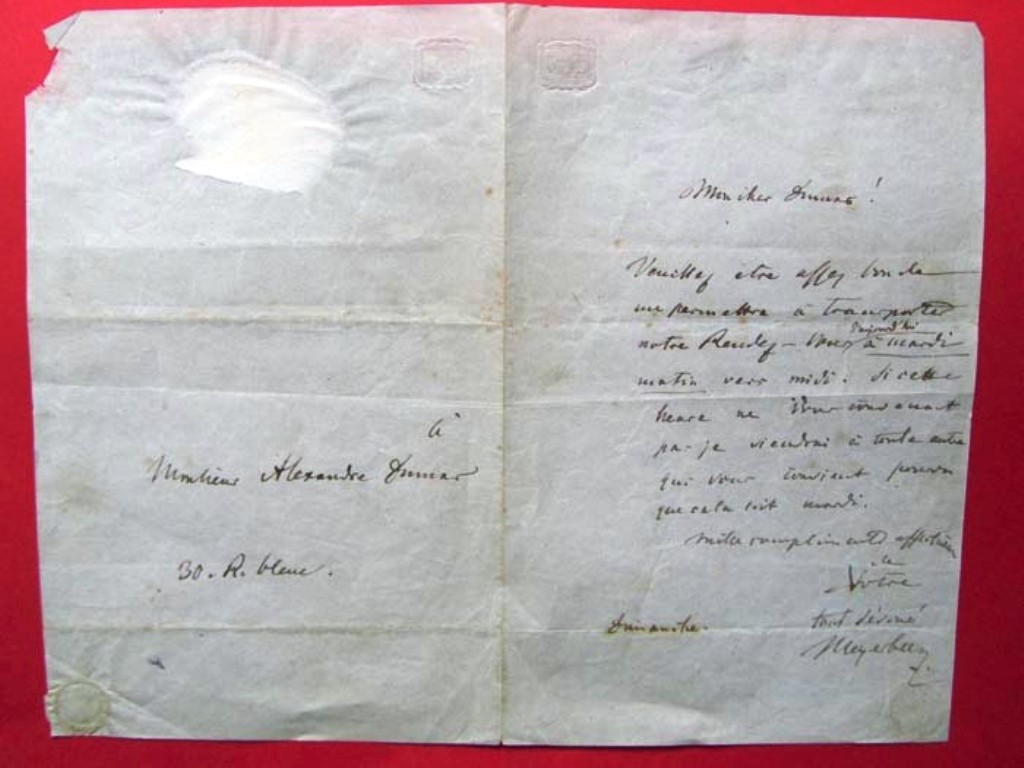 à
Monsieur Alexandre Dumas
30. R. bleue.
Mon cher Dumas!
Veuillez être assez bon de
me permettre à transporter
notre Rendez-Vous d'aujourd'hui à mardi
matin vers midi. Si cette
heure ne Vous convenait
pas je viendrai à toute autre
qui vous convient pourvu
que cela soit mardi.
mille compliments affectueux
de
Votre
tout dévoué
Meyerbeer
Dimanche.